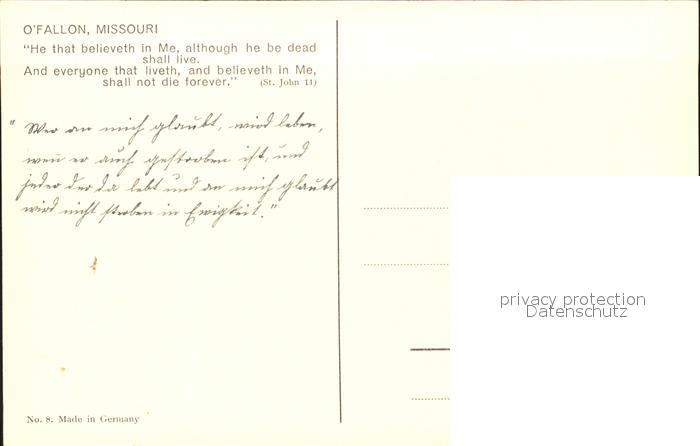 O'FALLON, MISSOURI
"He that believeth in Me, although he be dead
shall live.
And everyone that liveth, and believeth in Me,
shall not die forever." (St. John 11)
" Wer an mich glaubt, wird leben,
wenn er auch gestorben ist, und
jeder der da lebt und an mich glaubt
wird nicht sterben in Ewigkeit."
privacy protection
Datenschutz
No. 8. Made in Germany